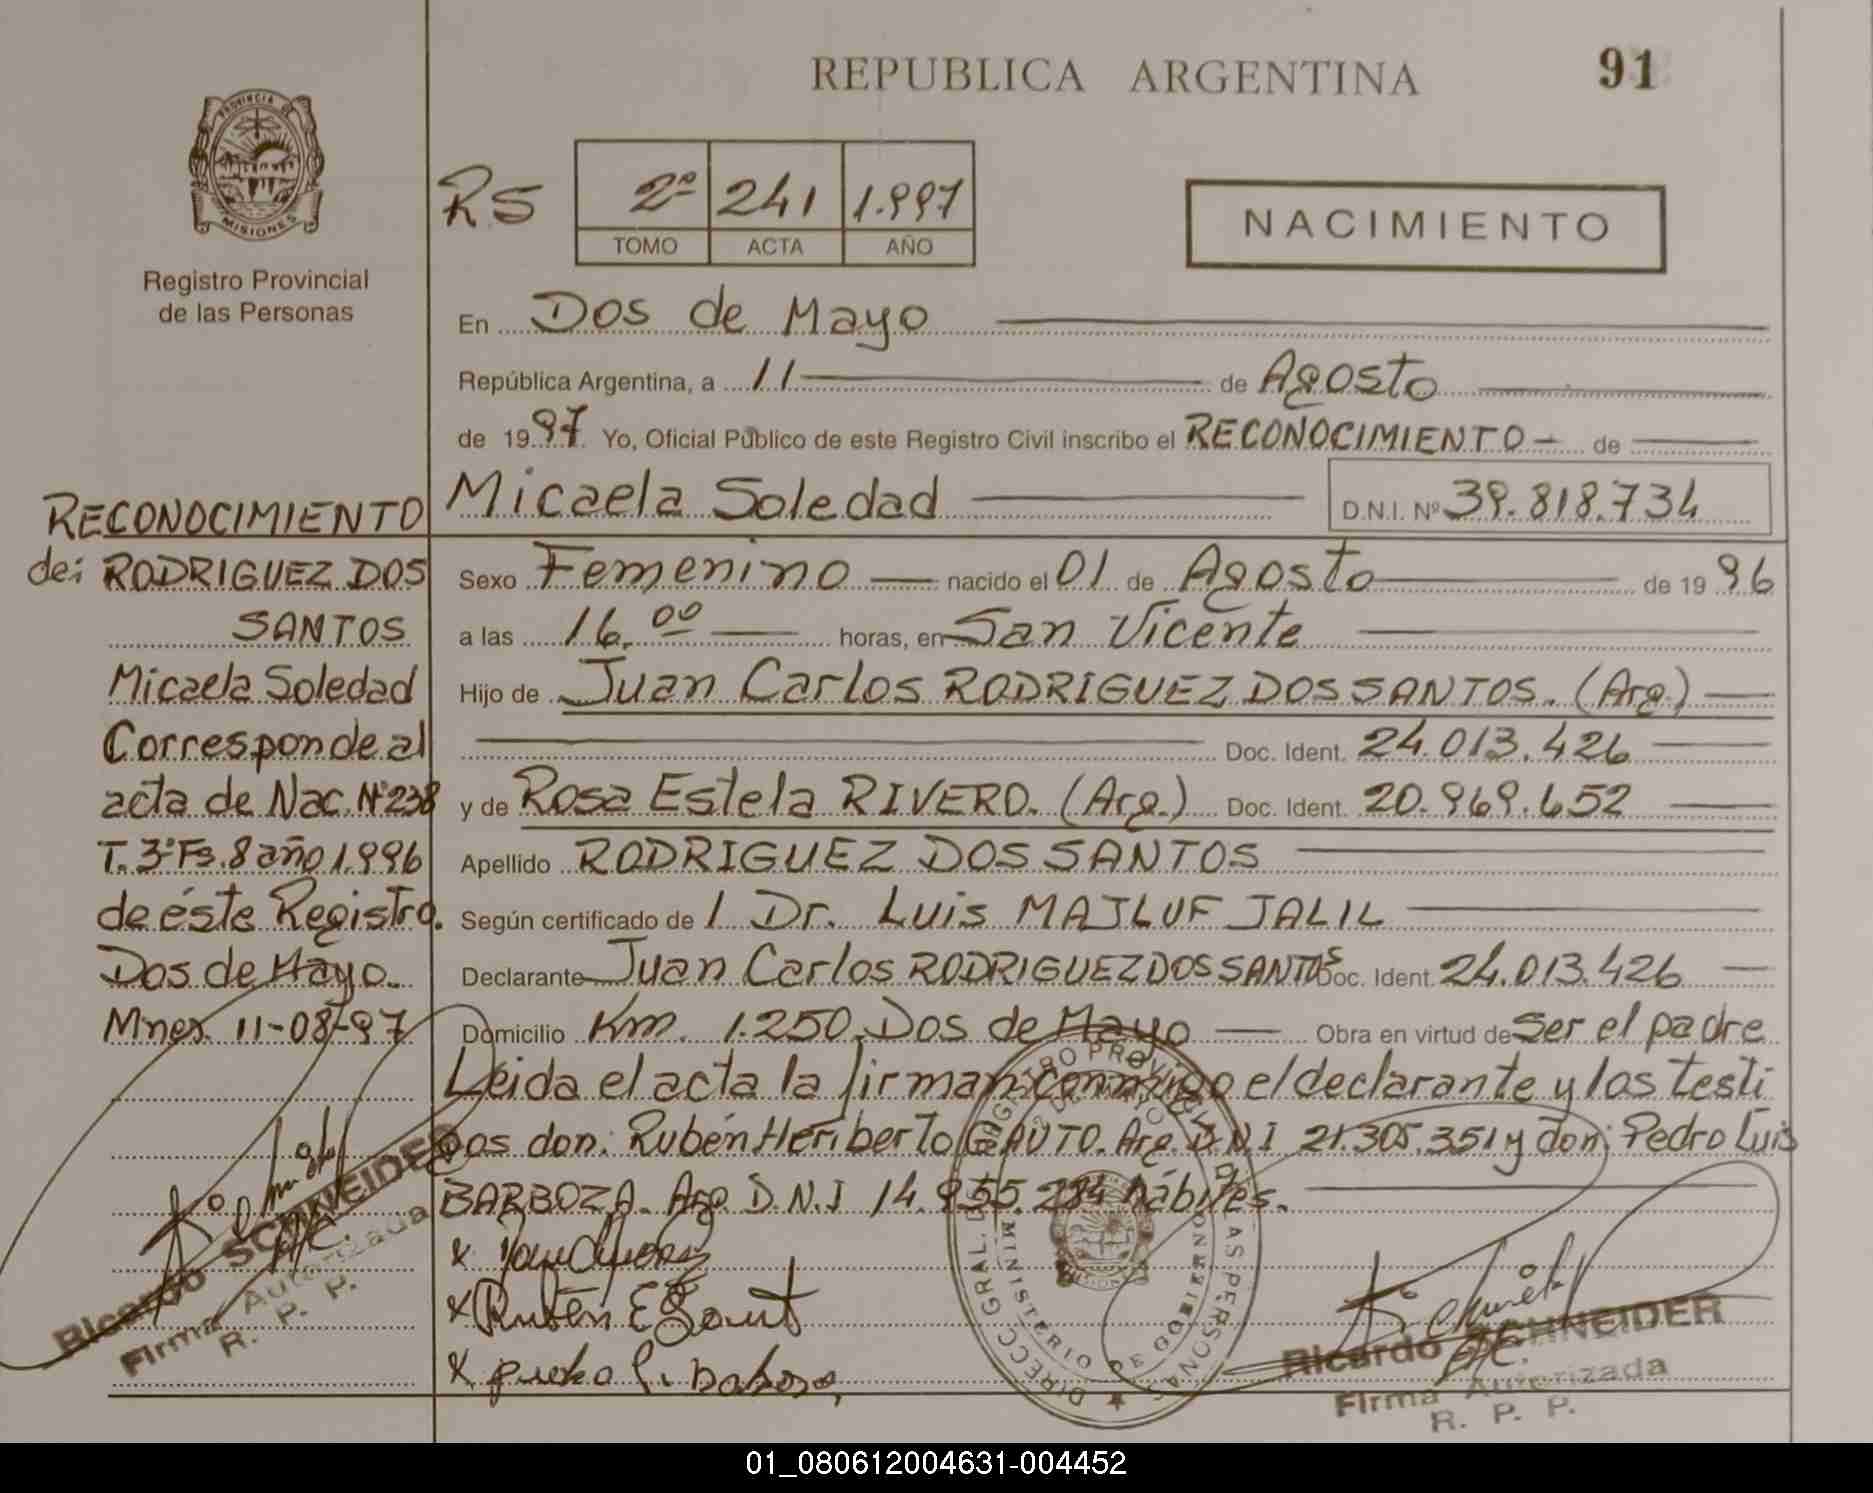 REPUBLICA ARGENTINA
91
PROVINCIA DE
MISIONES
Registro Provincial
de las Personas
RS
2º 241 1.997
TOMO ACTA AÑO
NACIMIENTO
En Dos de Mayo
República Argentina, a 11 de Agosto
de 1997 Yo, Oficial Público de este Registro Civil inscribo el RECONOCIMIENTO de
Micaela Soledad D.N.I. Nº 39.818.734
Sexo Femenino nacido el 01 de Agosto de 1996
a las 16.00 horas, en San Vicente
Hijo de Juan Carlos RODRIGUEZ DOS SANTOS. (Arg.)
Doc. Ident. 24.013.426
y de Rosa Estela RIVERO. (Arg.) Doc. Ident. 20.969.652
Apellido RODRIGUEZ DOS SANTOS
Según certificado de l Dr. Luis MAJLUF JALIL
Declarante Juan Carlos RODRIGUEZ DOS SANTOS Doc. Ident. 24.013.426
Domicilio Km. 1.250. Dos de Mayo Obra en virtud de Ser el padre
Leida el acta la firman conmigo el declarante y los testi
gos don: Rubén Heriberto GAUTO. Arg. D.N.I 21.305.351 y don: Pedro Luis
BARBOZA. Arg D.N.I 14.955.284 hábiles.
x
x Rubén E Gaut
x
RECONOCIMIENTO
de: RODRIGUEZ DOS
SANTOS
Micaela Soledad
Corresponde al
acta de Nac. Nº 238
T. 3º Fs. 8 año 1.996
de éste Registro.
Dos de Mayo.
Mnes. 11-08-97
Ricardo SCHNEIDER
Firma Autorizada
R. P. P.
DIRECC GRAL. DEL REGISTRO PROVINCIAL DE LAS PERSONAS
MINISTERIO DE GOBIERNO
Ricardo SCHNEIDER
Firma Autorizada
R. P. P.
01_080612004631-004452